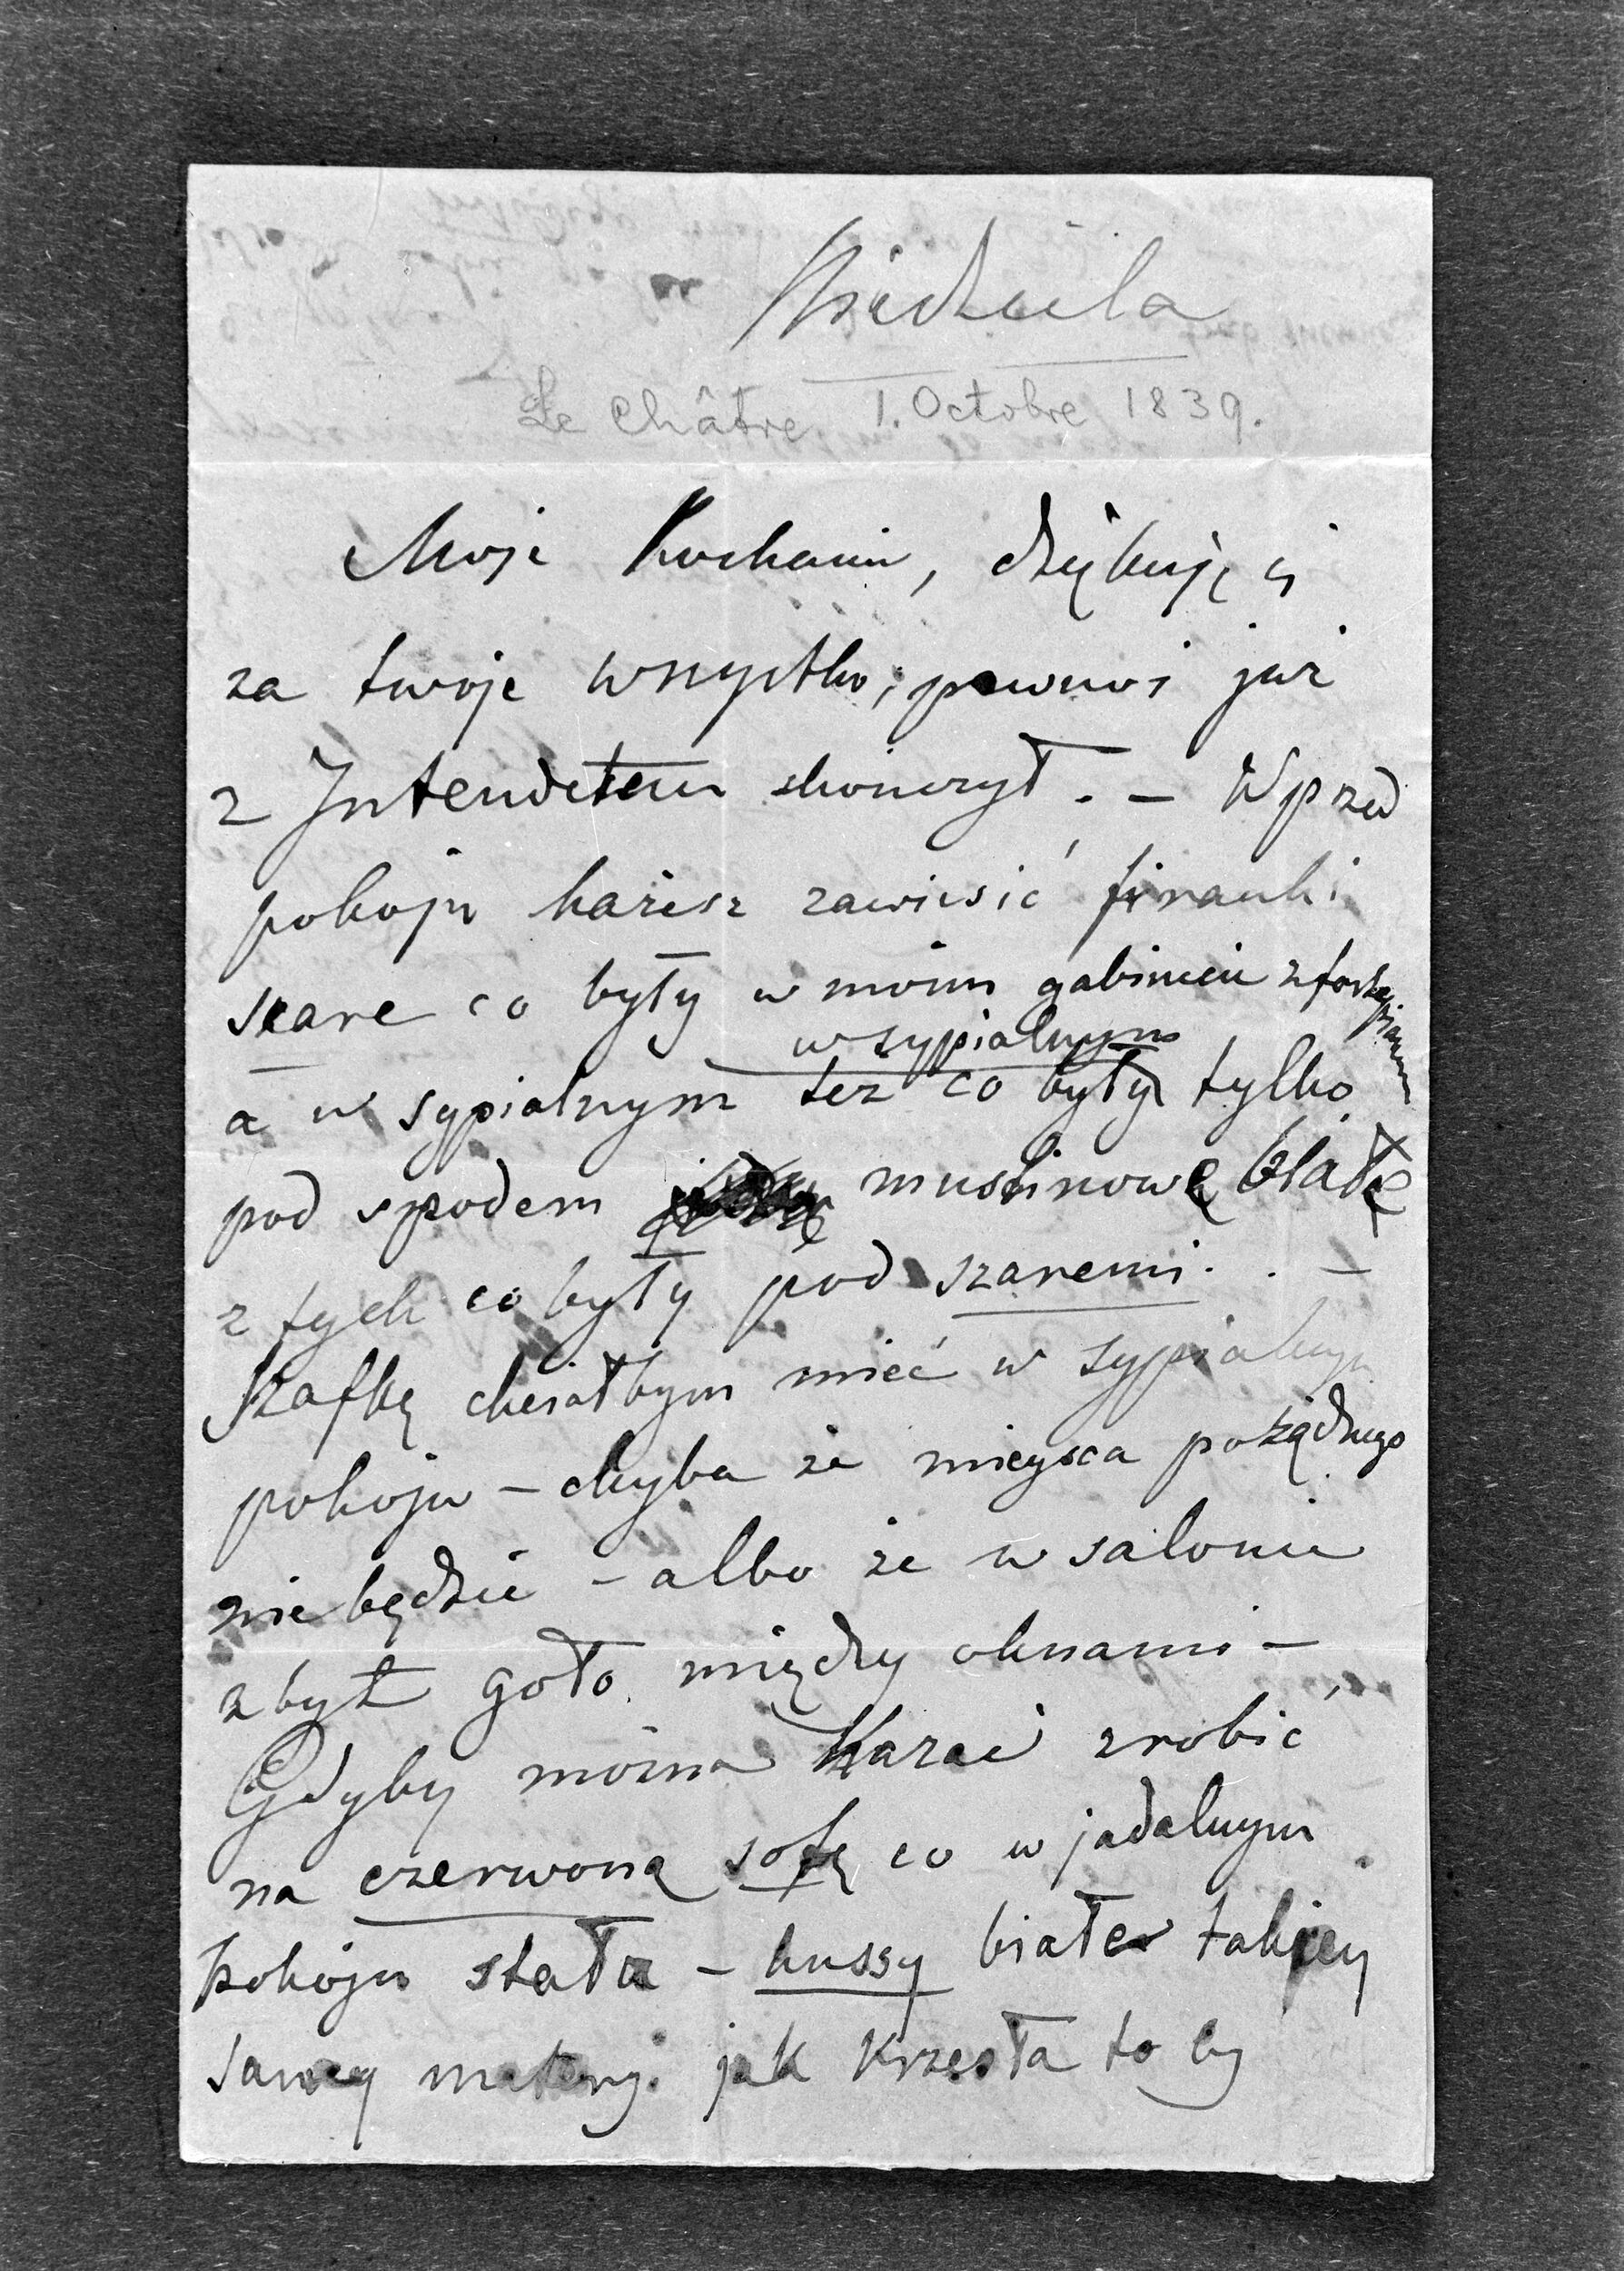 Niedziela
Le Châtre 1. Octobre 1839.
Moje Kochanie, dziękuję ci
za twoje wszystko; pewnoś już
z Intendetem skończył. – W przed
pokoju każesz zawiesić firanki
szare co były w moim gabinecie z fortepianem
w sypialnym
a w sypialnym też co były tylko
pod spodem muslinowę białę
z tych co były pod szaremi. . –
Szafkę chciałbym mieć w sypialnym
pokoju – chyba że mieysca pożądnego
nie będzie – albo że w salonie
zbyt goło między oknami –
Gdyby można kazać zrobić
na czerwoną sofę co w jadalnym
pokoju stała – kussy białe takiey
samey materyi jak krzesła to by